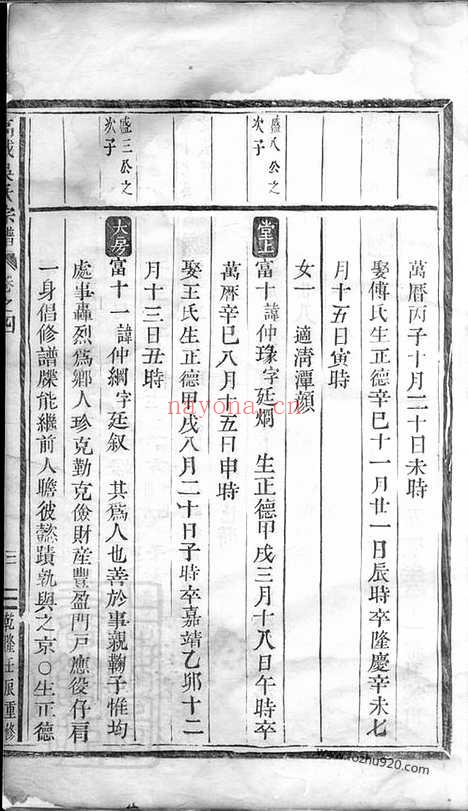 萬曆丙子十月二十日未時
娶傅氏生正德辛巳十一月廿一日辰時卒隆慶辛未七
月十五日寅時
女一　適清潭顔
盛八公之
次子
堂上
富十諱仲瑑字廷烱　生正德甲戌三月十八日午時卒
萬曆辛巳八月十五日申時
娶王氏生正德甲戌八月二十日子時卒嘉靖乙卯十二
月十三日丑時
盛三公之
次子
大房
富十一諱仲綱字廷叙　其爲人也善於事親鞠子惟均
處事轟烈爲鄉人珍克勤克儉財産豐盈門戶應役仔肩
一身倡修譜牒能繼前人瞻彼懿蹟孰與之京○生正德
宗譜
卷之四
三
乾隆壬辰重修
nayona.cn
www.tozhu920.com